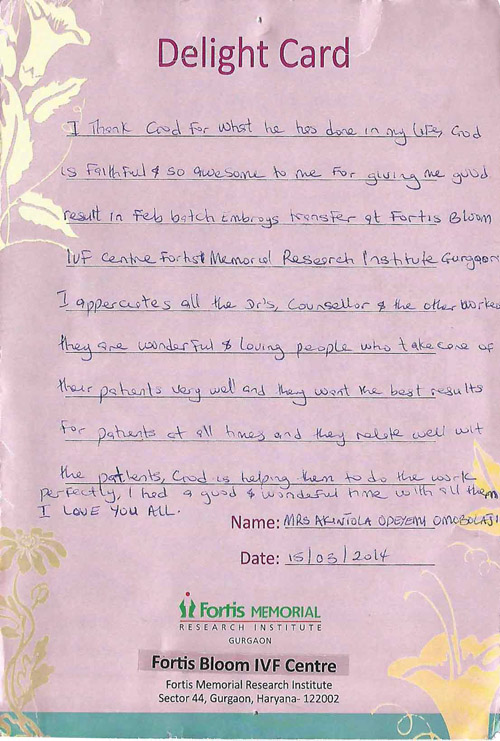 Delight Card
I Thank God For what he has done in my life, God
is Faithful & so awesome to me For giving me good
result in Feb batch Embroys transfer at Fortis Bloom
IVF Centre Fortis Memorial Research Institute Gurgaon
I apperciates all the Dr's, Counsellor & the other worker
they are wonderful & loving people who take care of
their patients very well and they want the best results
For patients at all times and they relate well wit
the patients, God is helping them to do the work
perfectly, I had a good & wonderful time with all them
I LOVE YOU ALL.
Name: MRS AKINTOLA ODEYEMI OMOBOLAJI
Date: 15/03/2014
Fortis MEMORIAL
RESEARCH INSTITUTE
GURGAON
Fortis Bloom IVF Centre
Fortis Memorial Research Institute
Sector 44, Gurgaon, Haryana- 122002